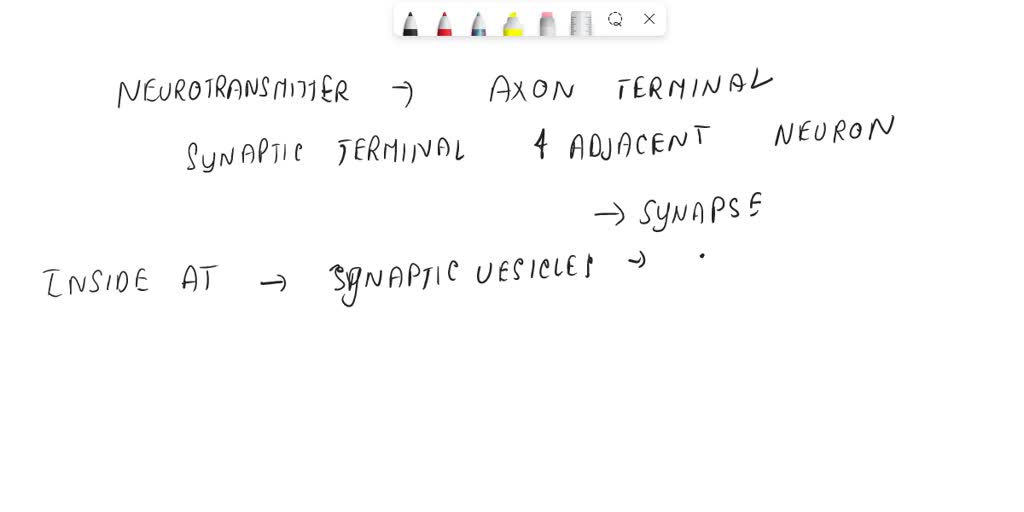 NEUROTRANSMITTER → AXON TERMINAL
SYNAPTIC TERMINAL & ADJACENT NEURON
→ SYNAPSE
INSIDE AT → SYNAPTIC VESICLES →